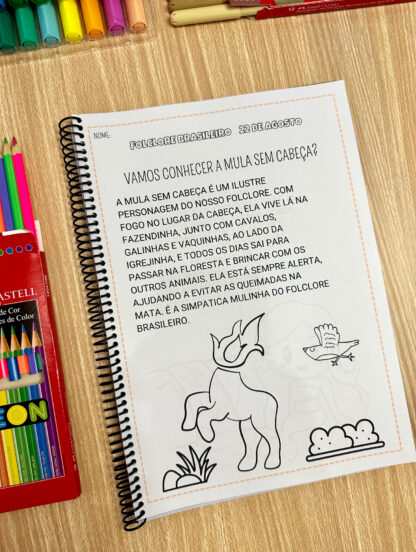 NOME:
FOLCLORE BRASILEIRO 22 DE AGOSTO
VAMOS CONHECER A MULA SEM CABEÇA?
A MULA SEM CABEÇA É UM ILUSTRE
PERSONAGEM DO NOSSO FOLCLORE. COM
FOGO NO LUGAR DA CABEÇA, ELA VIVE LÁ NA
FAZENDINHA, JUNTO COM CAVALOS,
GALINHAS E VAQUINHAS, AO LADO DA
IGREJINHA, E TODOS OS DIAS SAI PARA
PASSAR NA FLORESTA E BRINCAR COM OS
OUTROS ANIMAIS. ELA ESTÁ SEMPRE ALERTA,
AJUDANDO A EVITAR AS QUEIMADAS NA
MATA. É A SIMPATICA MULINHA DO FOLCLORE
BRASILEIRO.
ASTELL
de Cor
es de Color
EON